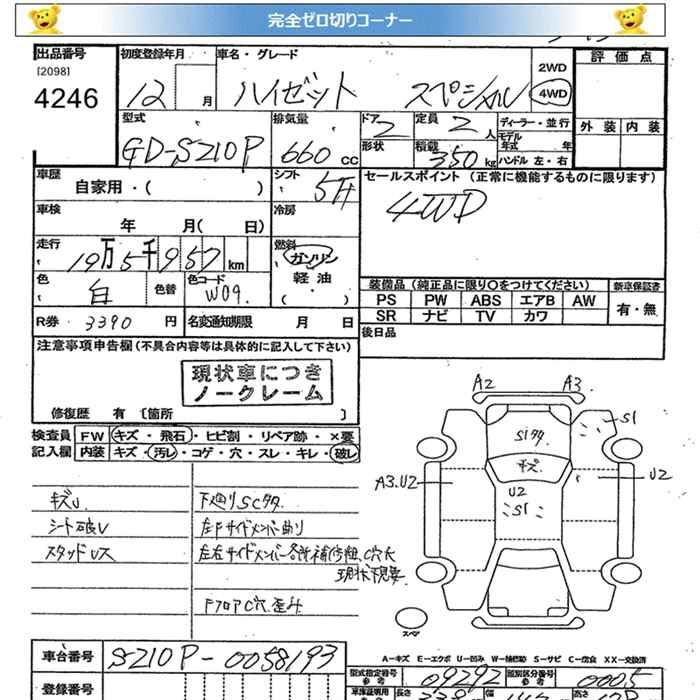 完全ゼロ切りコーナー
出品番号 初度登録年月 車名・グレード 2WD 評価点
[2098]
4246 12 月 ハイゼット スペシャル 4WD
型式 排気量 ドア 定員 ディーラー・並行 外装 内装
GD-S210P 660 CC 2 2 人 モデル年式 年
形状 積載 350 kg ハンドル 左・右
車歴 自家用・( ) シフト 5F セールスポイント (正常に機能するものに限ります)
4WD
車検 年 月( 日) 冷房
走行 19万5千957 km 燃料 ガソリン
軽油
( )
色 白 色替 色コード W09 装備品 (純正品に限り○をつけてください) 新車保証書
PS PW ABS エアB AW 有・無
SR ナビ TV カワ
R券 3390 円 名変通知期限 月 日 後日品
注意事項申告欄(不具合内容等は具体的に記入して下さい)
現状車につき
ノークレーム
修復歴 有 [箇所 ]
検査員 FW キズ・飛石・ヒビ割・リペア跡・×要
記入欄 内装 キズ・汚レ・コゲ・穴・スレ・キレ・破レ
キズU 下廻りSCサタ
シート破レ 左Fサイドメンバー曲り
左右サイドメンバー各所補修粗、C穴大
現状下見要
FフロアC穴 歪み
A2 A3
S1
Sワタ
キズ
A3.U2 U2
U2
S1
スペア
A-キズ E-エクボ U-凹み W-補修跡 S-サビ C-腐食 XX-交換済
車台番号 S210P-0058193
型式指定番号 参考 09292 類別区分番号 参考 0005
登録番号 車庫証明用 長さ 幅 高さ